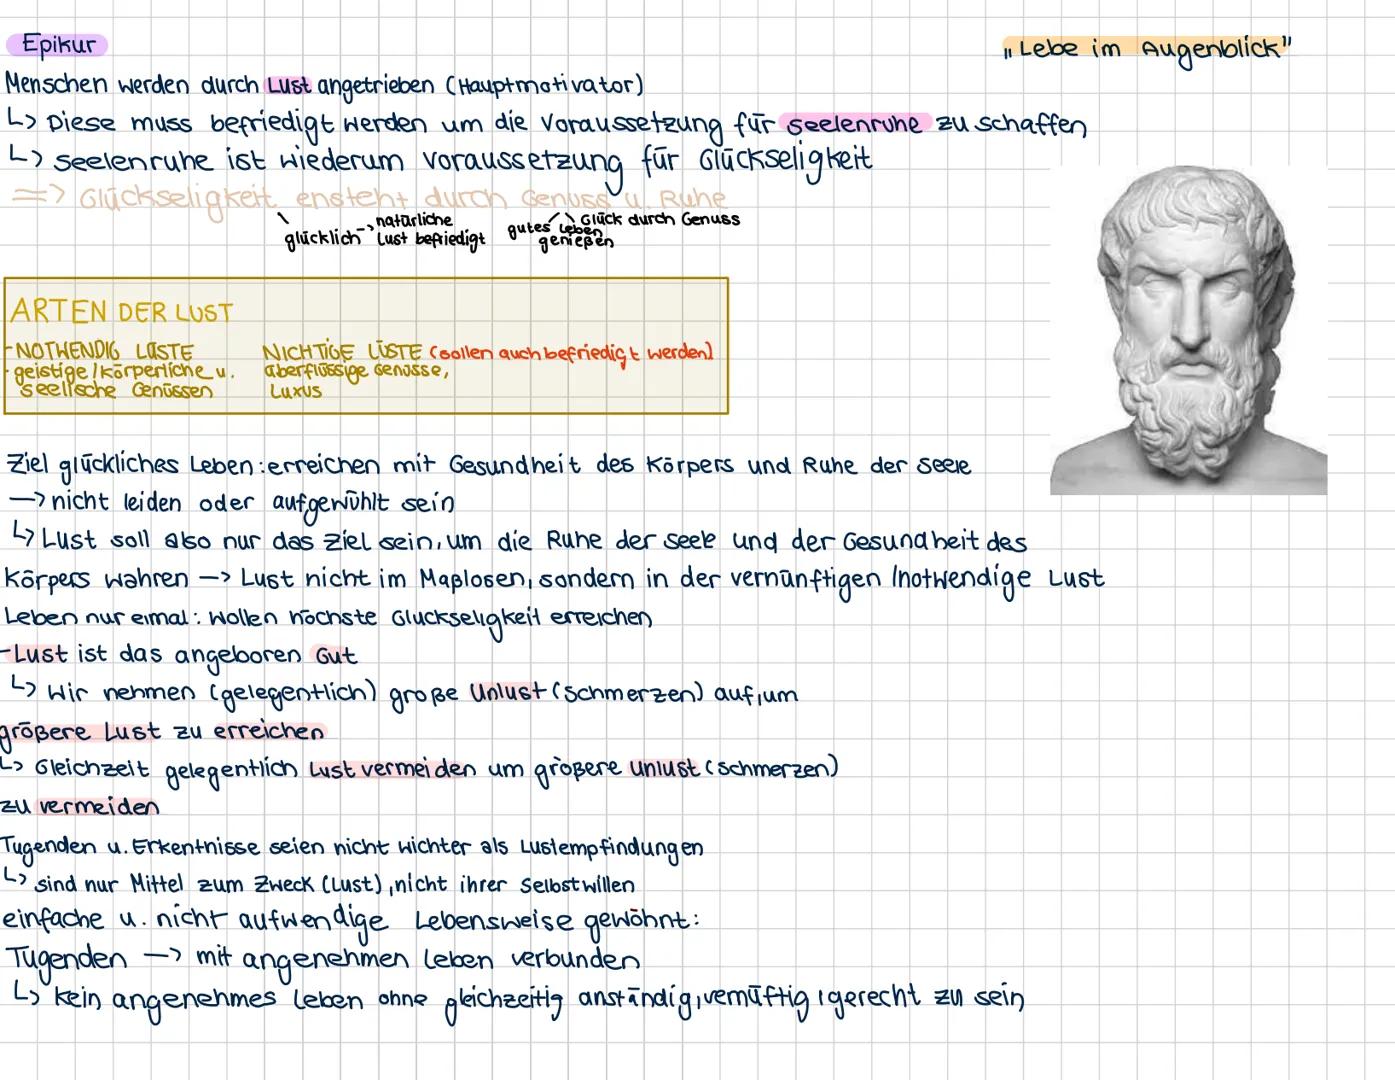 Epikur
„Lebe im Augenblick"
Menschen werden durch Lust angetrieben (Hauptmotivator)
↳ Diese muss befriedigt werden um die Voraussetzung für Seelenruhe zu schaffen
↳ Seelenruhe ist wiederum voraussetzung für Glückseligkeit
=> Glückseligkeit ensteht durch Genuss u. Ruhe
glücklich -> natürliche Lust befriedigt
gutes Leben genießen
Glück durch Genuss
ARTEN DER LUST
-NOTWENDIG LÜSTE
- geistige/körperliche u.
seelische Genüssen
NICHTIGE LÜSTE (sollen auch befriedigt werden)
überflüssige Genüsse,
Luxus
Ziel glückliches Leben: erreichen mit Gesundheit des Körpers und Ruhe der Seele
—> nicht leiden oder aufgewühlt sein
↳ Lust soll also nur das Ziel sein, um die Ruhe der Seele und der Gesundheit des
Körpers wahren —> Lust nicht im Maßlosen, sondern in der vernünftigen /notwendige Lust
Leben nur eimal: wollen höchste Glückseligkeit erreichen
-Lust ist das angeboren Gut
↳ Wir nehmen (gelegentlich) große Unlust (Schmerzen) auf, um
größere Lust zu erreichen
↳ Gleichzeit gelegentlich Lust vermeiden um größere Unlust (Schmerzen)
zu vermeiden
Tugenden u. Erkentnisse seien nicht wichter als Lustempfindungen
↳ sind nur Mittel zum Zweck (Lust), nicht ihrer Selbst willen
einfache u. nicht aufwendige Lebensweise gewöhnt:
Tugenden —> mit angenehmen Leben verbunden
↳ kein angenehmes Leben ohne gleichzeitig anständig, vernüftig, gerecht zu sein